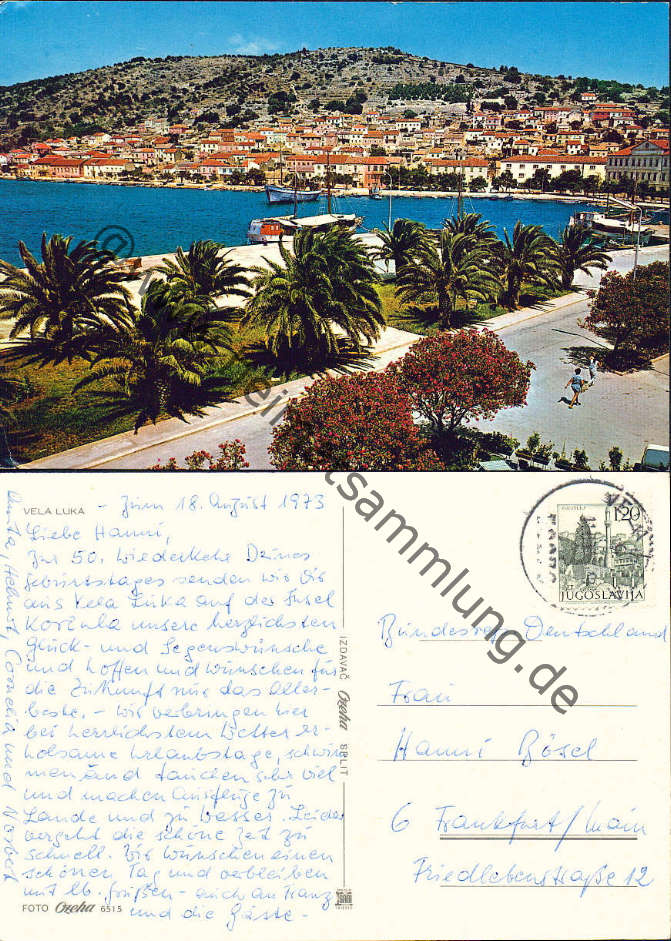 @ einzelstücksammlung.de
VELA LUKA - Zum 18. August 1973
Liebe Hanni,
Zur 50. Wiederkehr Deines
Geburtstages senden wir Dir
aus Vela Luka auf der Insel
Korčula unsere herzlichsten
Glück- und Segenswünsche
und hoffen und wünschen für
die Zukunft nur das Aller-
beste. - Wir verbringen hier
bei herrlichstem Wetter er-
holsame Urlaubstage, schwim
men und tauchen sehr viel
und machen Ausflüge zu
Lande und zu Wasser. Leider
vergeht die schöne Zeit zu
schnell. Wir wünschen einen
schönen Tag und verbleiben
mit lb. Grüßen - auch an Franz
und die Gäste -
Anita, Helmut, Cornelia und Norbert
FOTO Ozeha 6515
IZDAVAČ Ozeha SPLIT
1,20
JUGOSLAVIJA
Bundesrep. Deutschland
Frau
Hanni Bösel
6 Frankfurt/Main
Friedlebenstraße 12